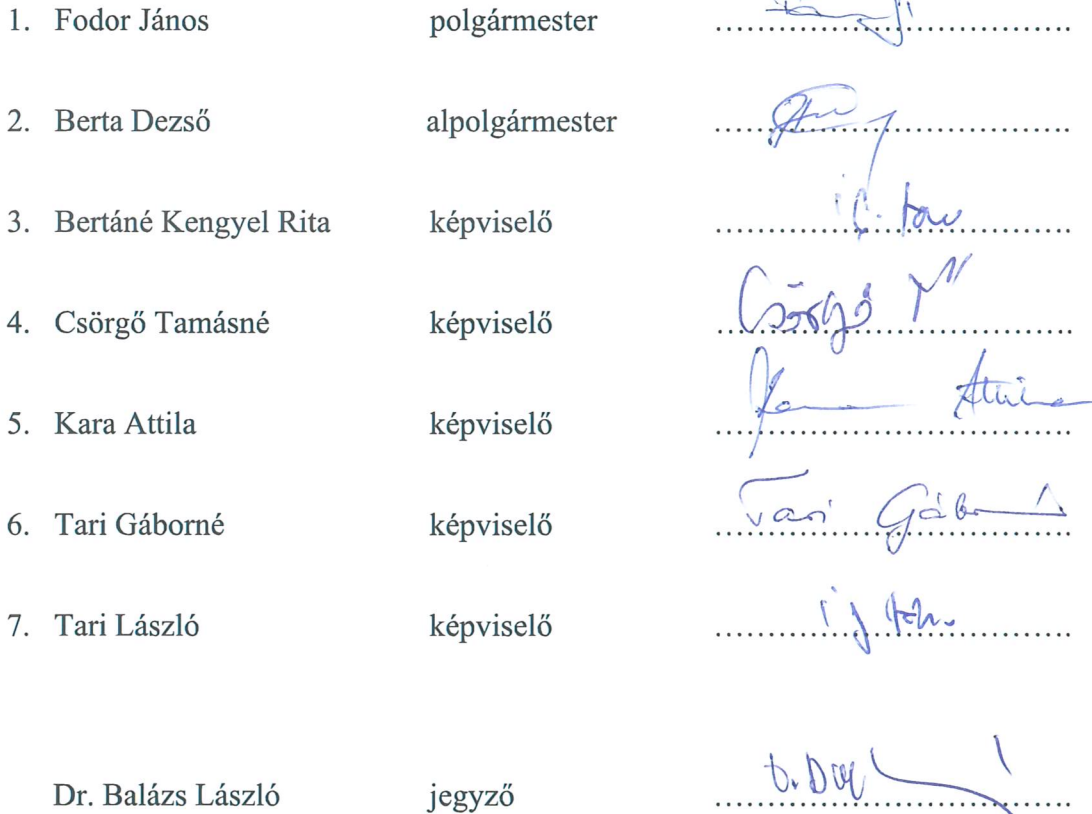 1. Fodor János polgármester ........................................
2. Berta Dezső alpolgármester ........................................
3. Bertáné Kengyel Rita képviselő ........................................
4. Csörgő Tamásné képviselő Csörgő
5. Kara Attila képviselő Kara Attila
6. Tari Gáborné képviselő Tari Gáborné
7. Tari László képviselő ........................................
Dr. Balázs László jegyző ........................................